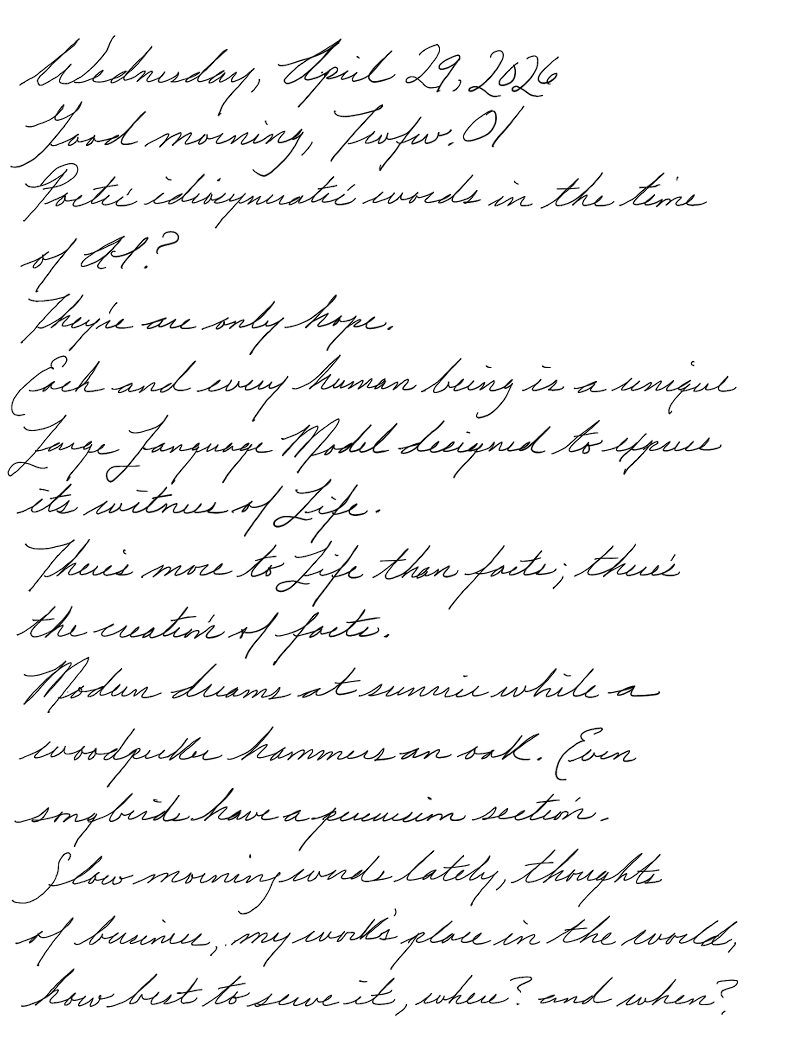 Wednesday, April 29, 2026
Good morning, Twfw.01
Poetic idiosyncratic words in the time
of AI?
They're are only hope.
Each and every human being is a unique
Large Language Model designed to express
its witness of Life.
There's more to Life than facts; there's
the creation of facts.
Modern dreams at sunrise while a
woodpecker hammers an oak. Even
songbirds have a percussion section.
Slow morning words lately, thoughts
of business, my work's place in the world,
how best to serve it, where? and when?